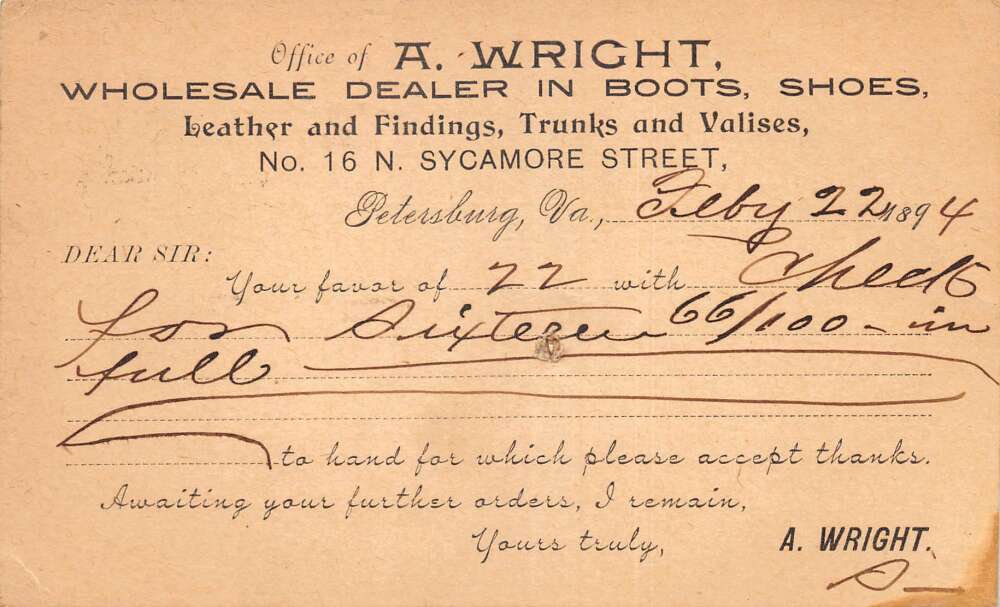 Office of A. WRIGHT,
WHOLESALE DEALER IN BOOTS, SHOES,
Leather and Findings, Trunks and Valises,
No. 16 N. SYCAMORE STREET,
Petersburg, Va., Feby 22 1894
DEAR SIR:
Your favor of 22 with Check
for Sixteen 66/100 - in
full
to hand for which please accept thanks.
Awaiting your further orders, I remain,
Yours truly, A. WRIGHT.